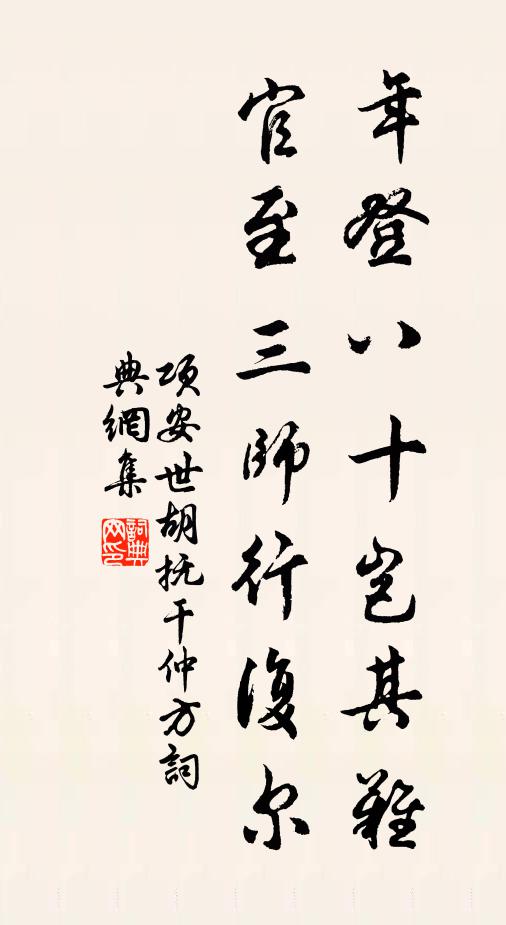 年登八十岂其難
官至三師行復尔
項安世胡抚干仲方詞
典網集
詞典
网印